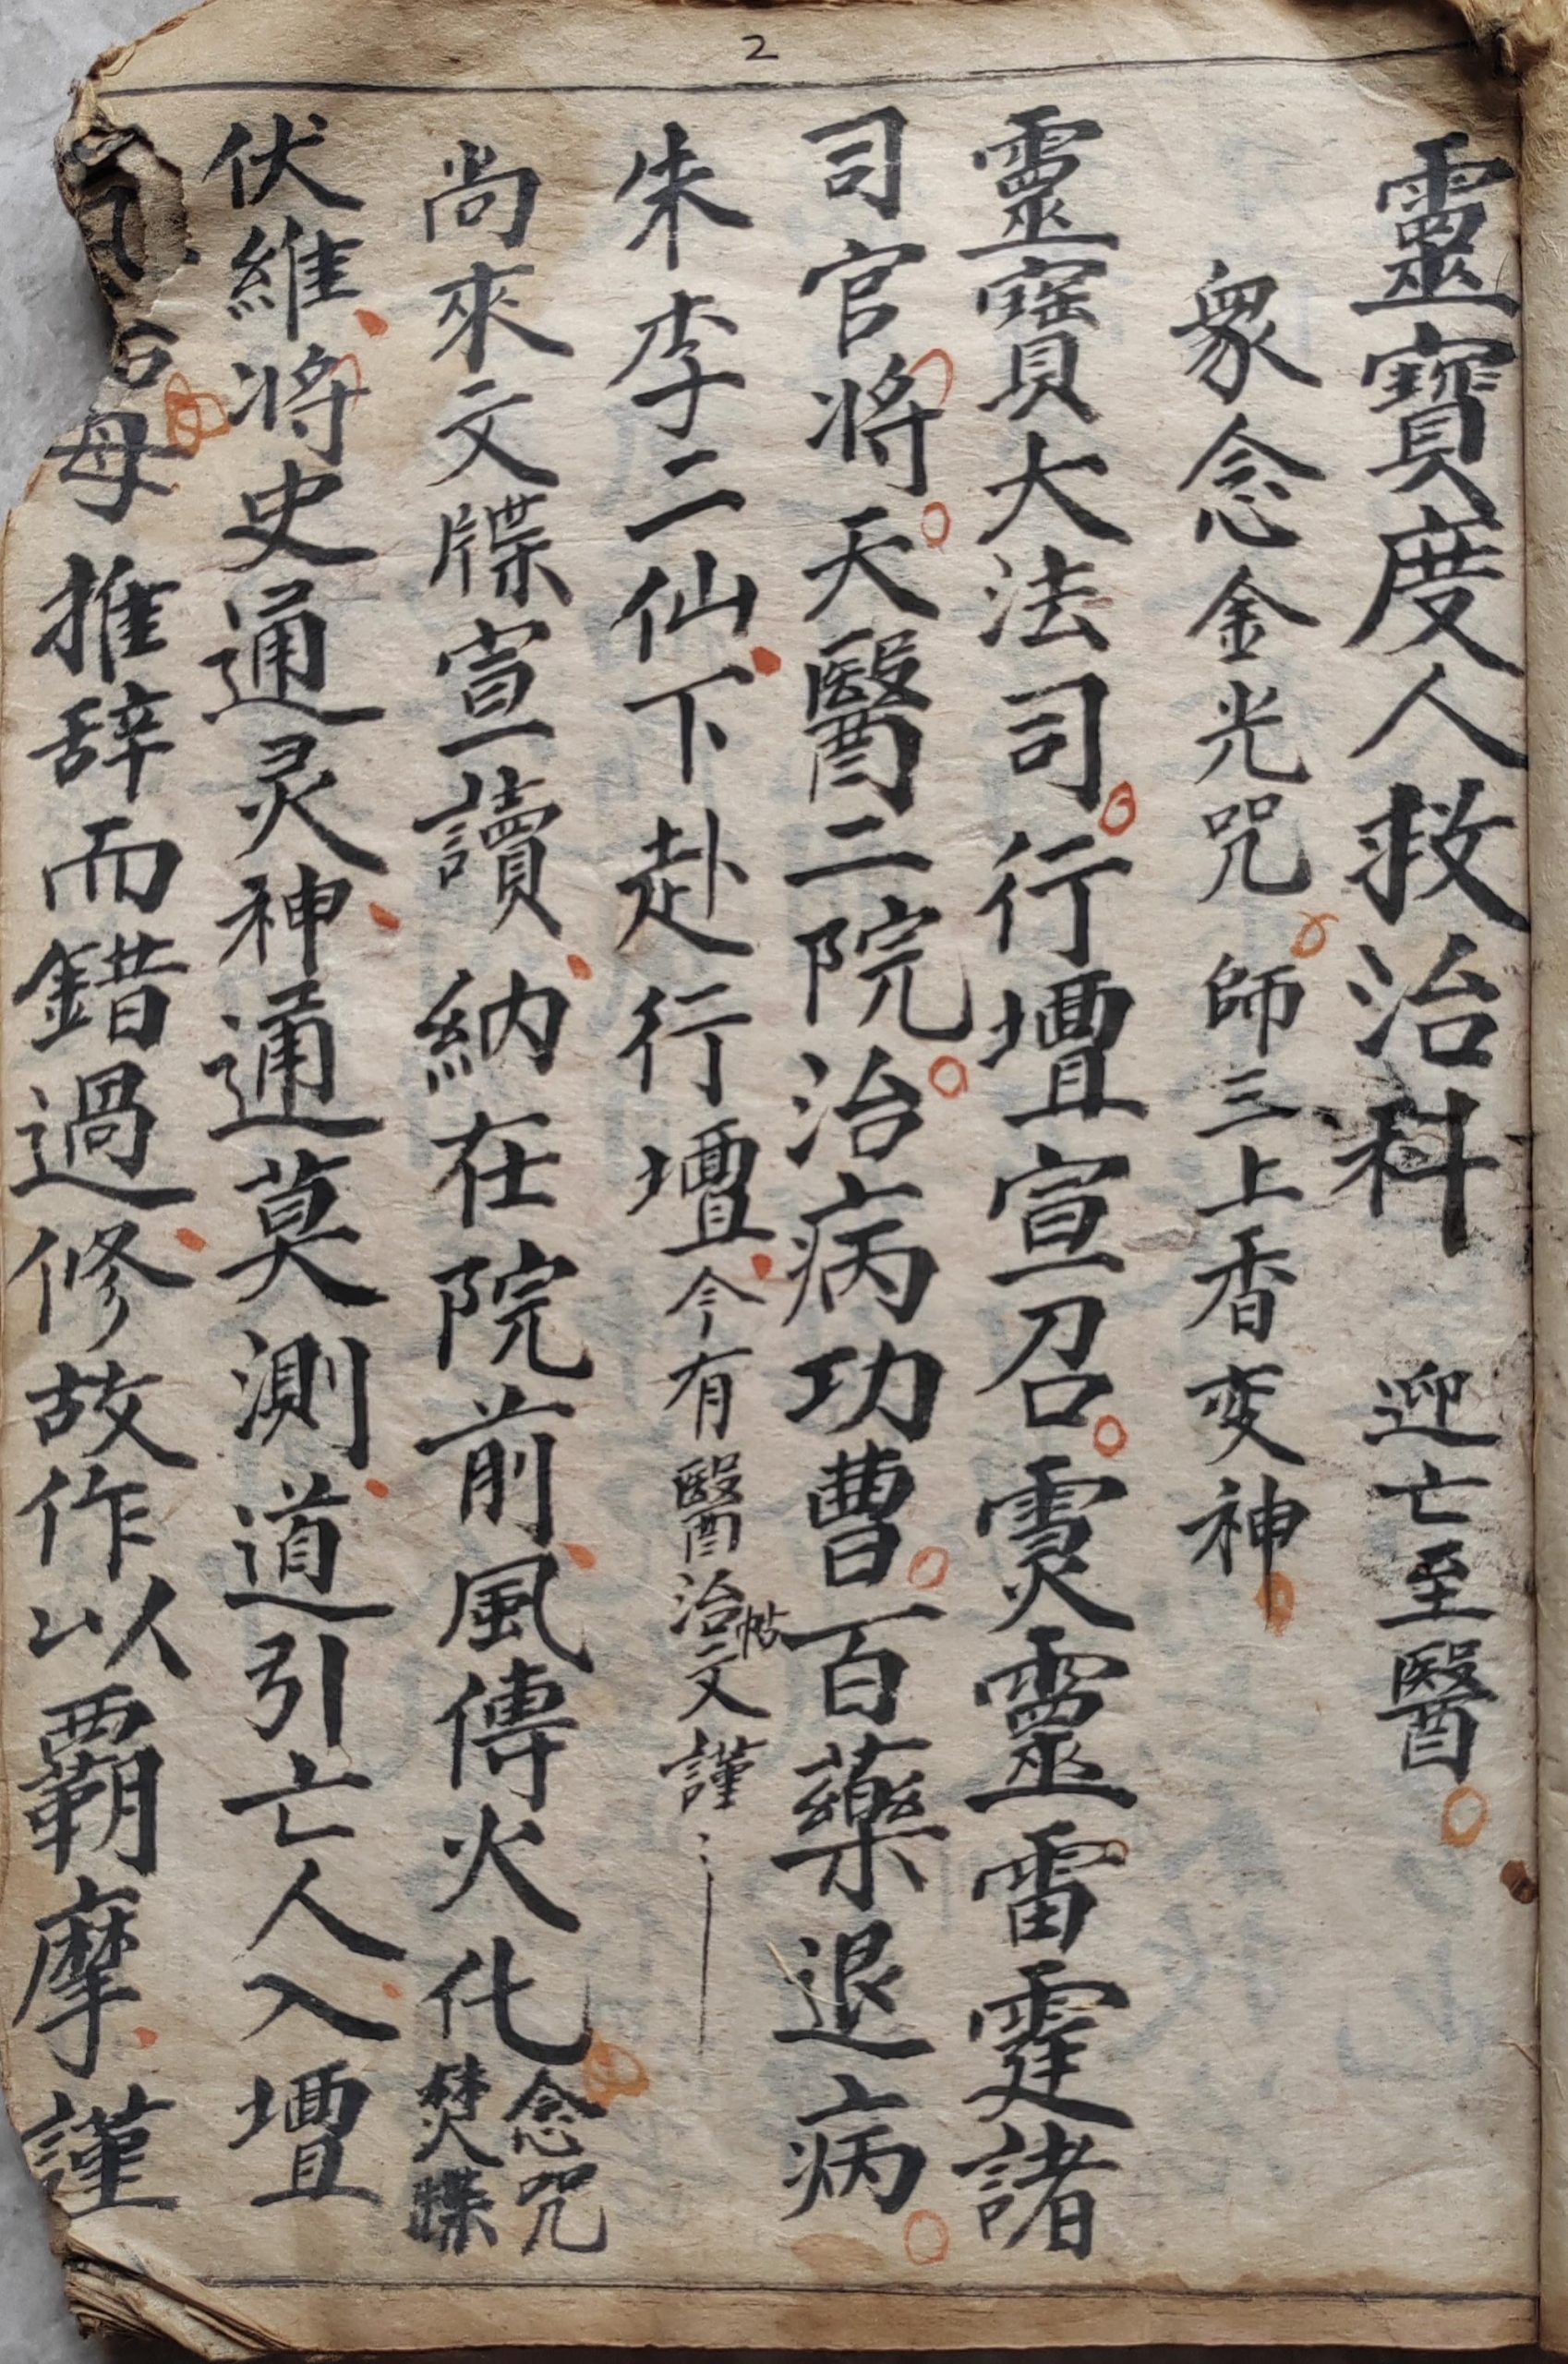 2
靈寶度人救治科 迎亡至醫
衆念金光咒 師三上香变神
靈寶大法司行壇宣召霊靈雷霆諸
司官将天醫二院治病功曹百藥退病
朱李二仙下赴行壇今有醫治文帖謹
尚來文牒宣讀納在院前風傳火化念咒焚牒
伏維将史通灵神通莫測道引亡人入壇
母推辞而錯過修故作以覇摩謹